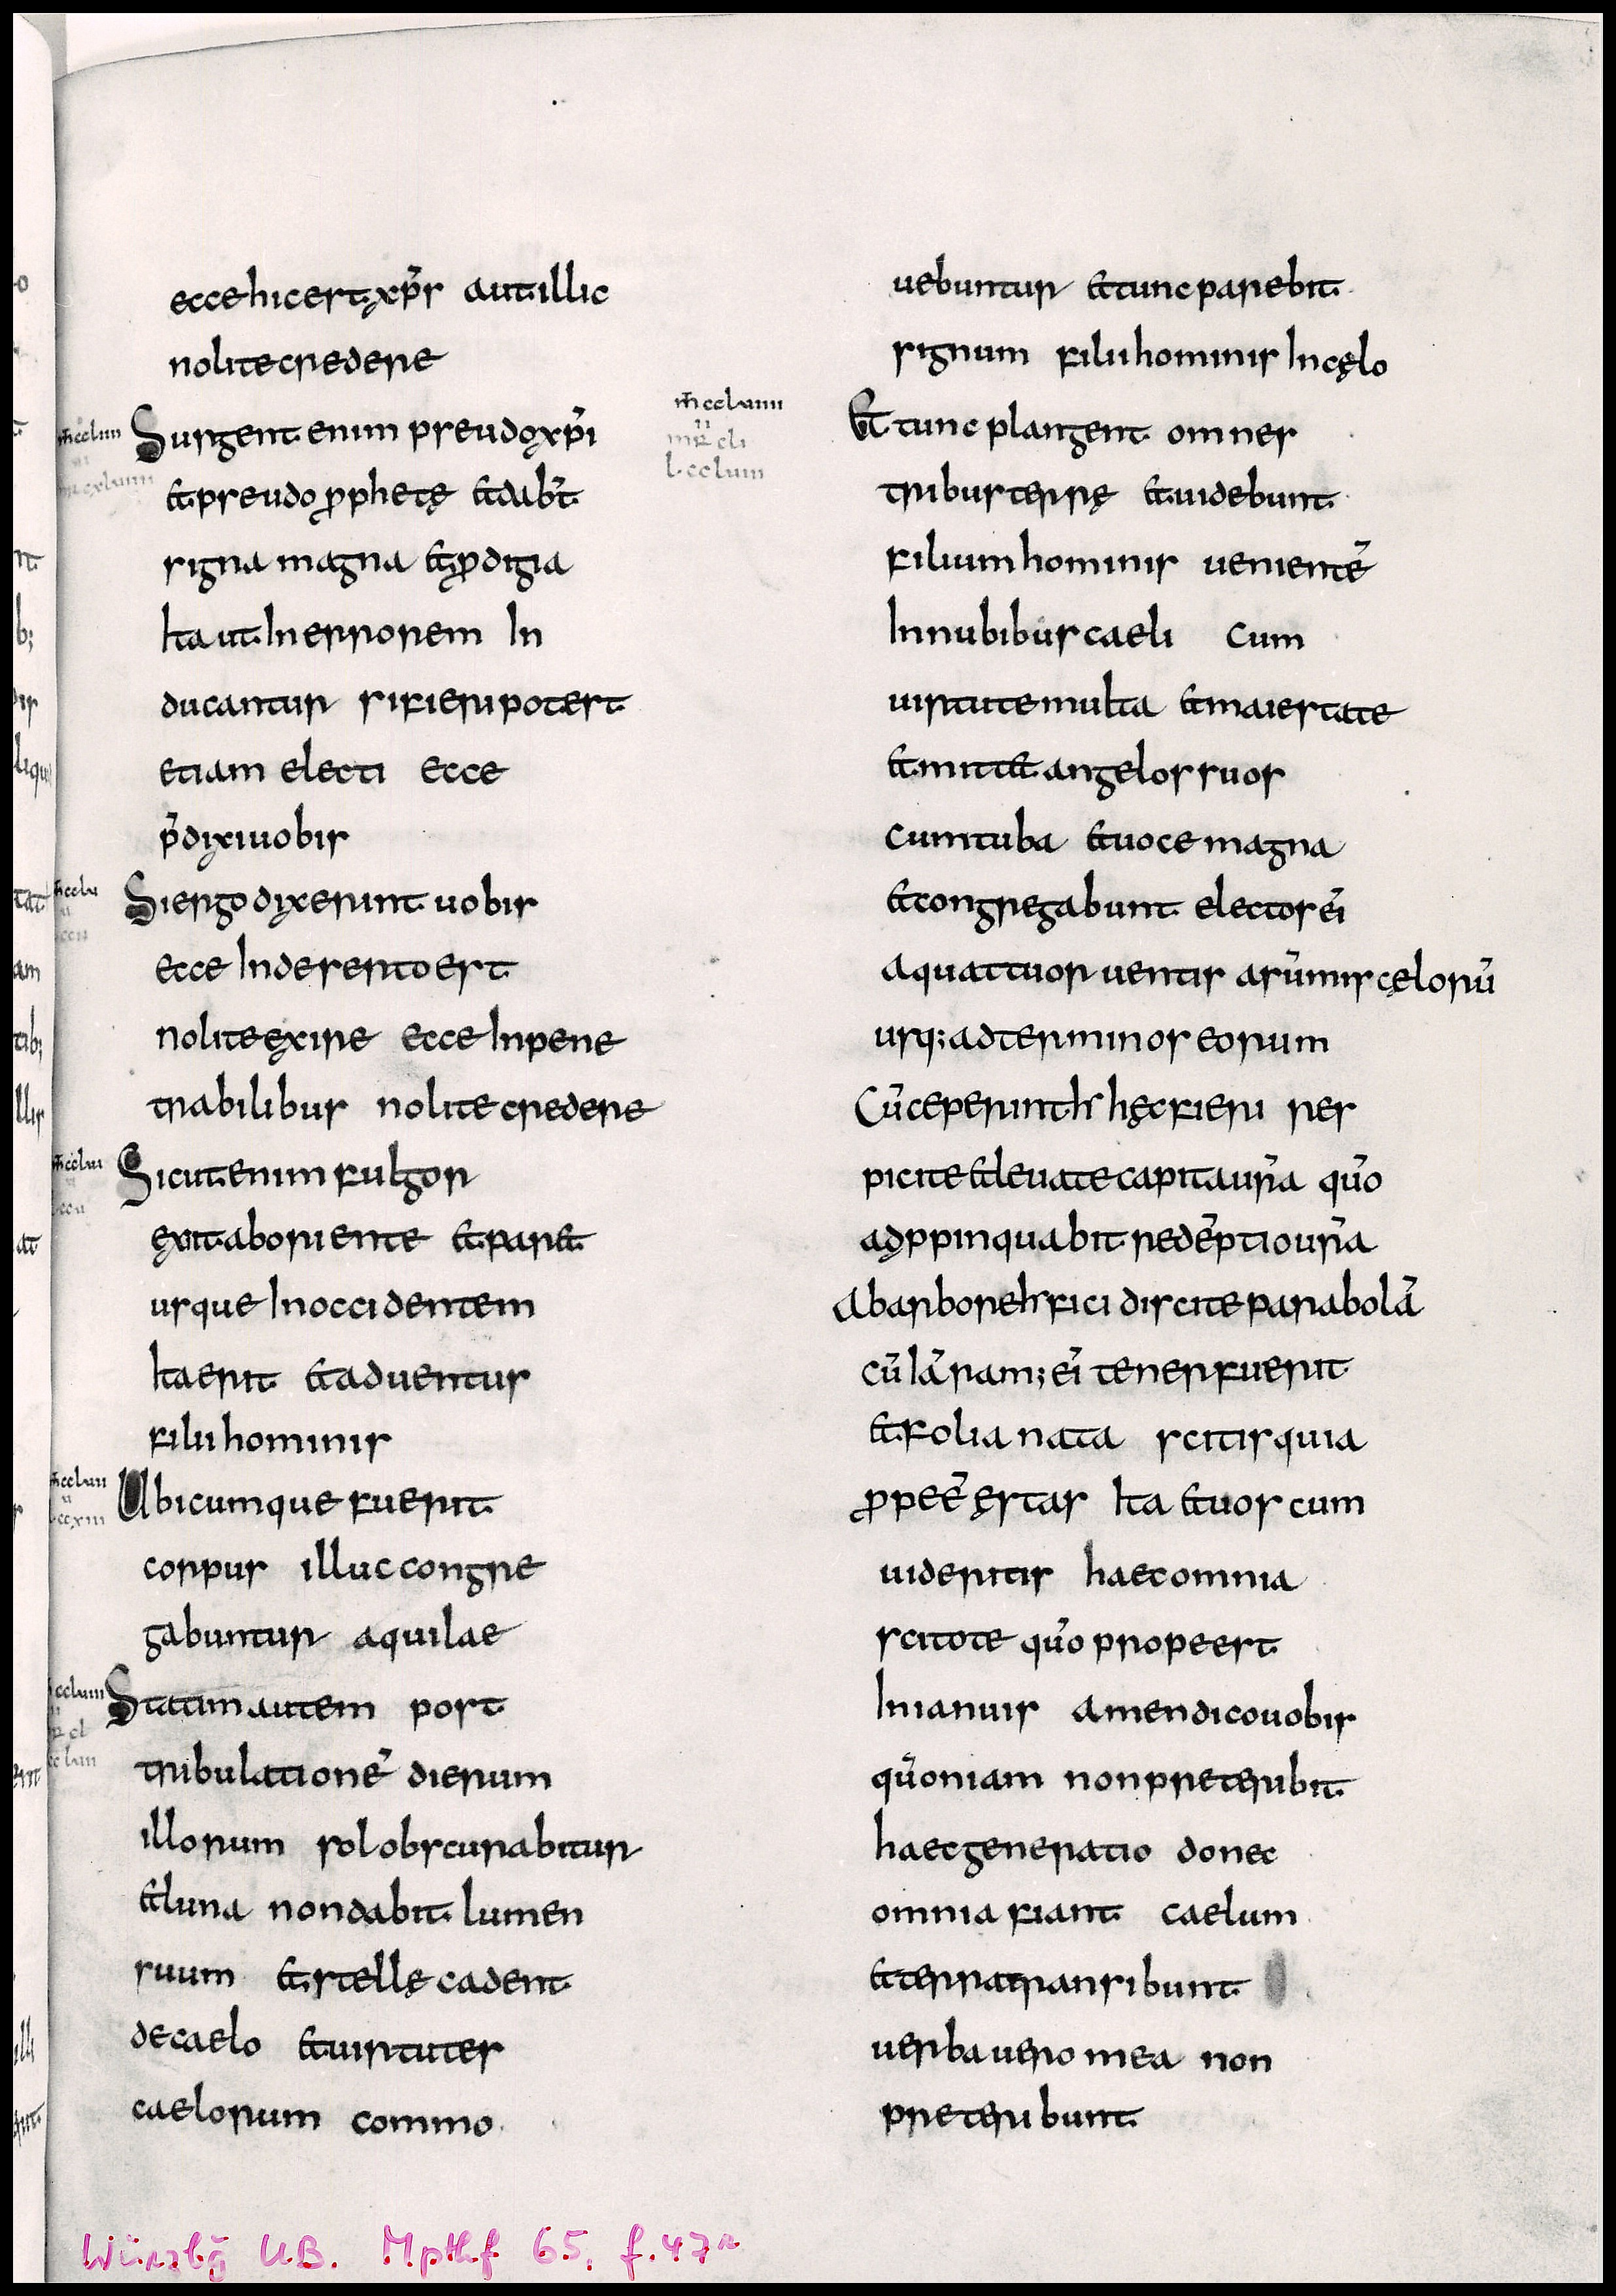 ecce hic est xp̄s aut illic
nolite credere
Surgent enim pseudoxp̄i
et pseudo prophetę et dab̄t
signa magna et prodigia
Ita ut In errorem In
ducantur si fieri potest
etiam electi ecce
p̄dixi uobis
Si ergo dixerint uobis
ecce In deserto est
nolite exire ecce In pene
trabilibus nolite credere
Sicut enim fulgor
exit ab oriente et paret
usque In occidentem
Ita erit et aduentus
filii hominis
Ubicumque fuerit
corpus illuc congre
gabuntur aquilae
Statim autem post
tribulationē dierum
illorum sol obscurabitur
et luna non dabit lumen
suum et stellę cadent
de caelo et uirtutes
caelorum commo
uebuntur et tunc parebit
signum filii hominis In cęlo
Et tunc plangent omnes
tribus terrę et uidebunt
filium hominis uenientē
In nubibus caeli cum
uirtute multa et maiestate
et mittet angelos suos
cum tuba et uoce magna
et congregabunt electos ei̅
a quattuor uentis a sūmis cęlorū
usq; ad terminos eorum
Cū ceperint hr̄ hęc fieri res
picite et leuate capita ur̄a qūo
adppinquabit redēptio ur̄a
Ab arbore hr̄ fici discite parabolā
cū Iā ram; ei̅ tener fuerit
et folia nata scitis quia
prope ē ęstas Ita et uos cum
uideritis haec omnia
scitote qūo prope est
In ianuis amen dico uobis
qūoniam non preteribit
haec generatio donec
omnia fiant caelum
et terra transibunt
uerba uero mea non
preteribunt
m̄ccluiiii
ii
mr̄ cli
l·ccluiii
Würzbg UB. Mpthf 65, f.47r